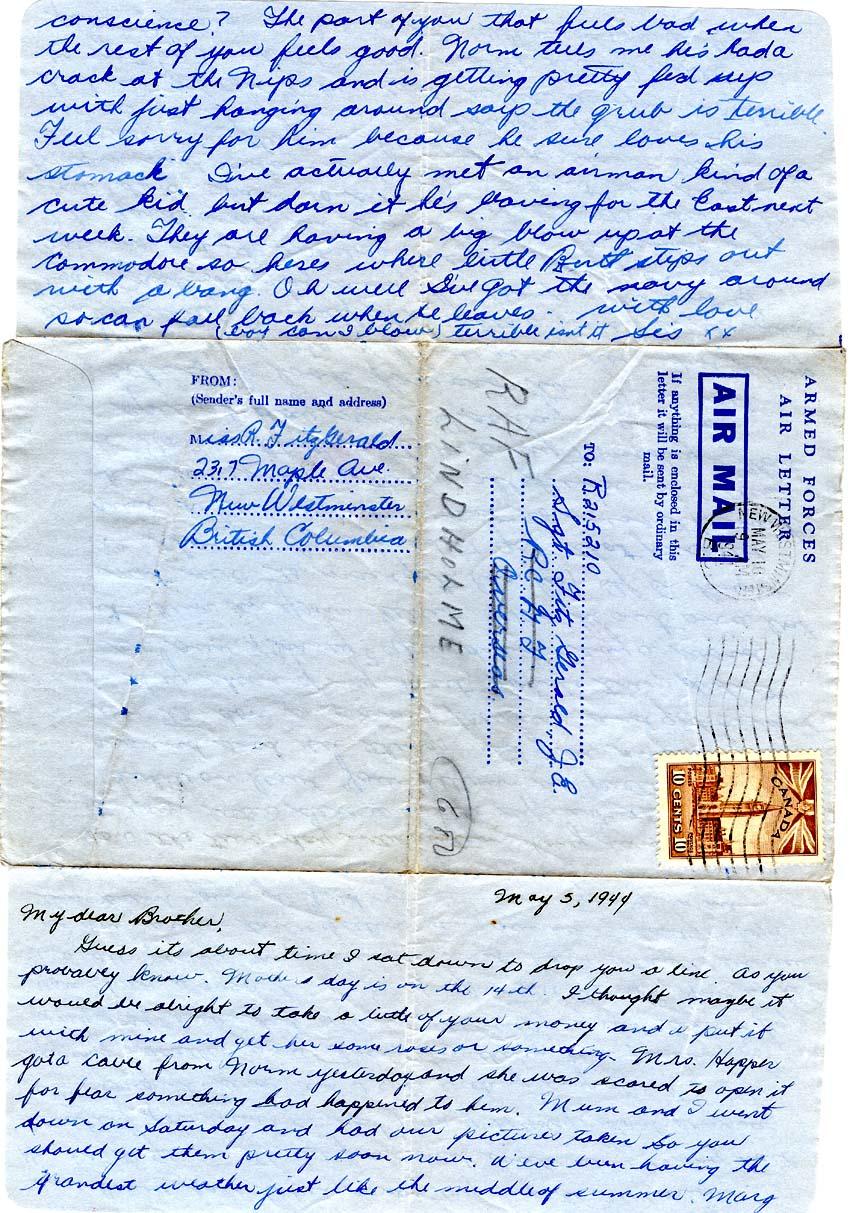 conscience? The part of you that feels bad when
the rest of you feels good. Norm tells me he's had a
crack at the Nips and is getting pretty fed up
with just hanging around says the grub is terrible.
Feel sorry for him because he sure loves his
stomack I've actually met an airman kind of a
cute kid but darn it he's leaving for the East next
week. They are having a big blow up at the
Commodore so heres where little Berth steps out
with a bang. Oh well I've got the navy around
so can fall back when he leaves. with love
(boy can I blow) terrible isnt it Sis xx
FROM:
(Sender's full name and address)
Miss R. FitzGerald
2317 Maple Ave.
New Westminster
British Columbia
ARMED FORCES
AIR LETTER
AIR MAIL
If anything is enclosed in this
letter it will be sent by ordinary
mail.
NEW WESTMINSTER
MAY
TO: R215210
Sgt. Fitz Gerald, J.E.
Overseas.
RAF
LINDHOLME
CANADA
10 CENTS 10
May 5, 1944
My dear Brother,
Guess its about time I sat down to drop you a line. As you
probabley know. Mothers day is on the 14th. I thought maybe it
would be alright to take a little of your money and put it
with mine and get her some roses or something. Mrs. Happer
got a cable from Norm yesterday and she was scared to open it
for fear something had happened to him. Mum and I went
down on Saturday and had our pictures taken So you
should get them pretty soon now. We've been having the
grandest weather just like the middle of summer. Marg